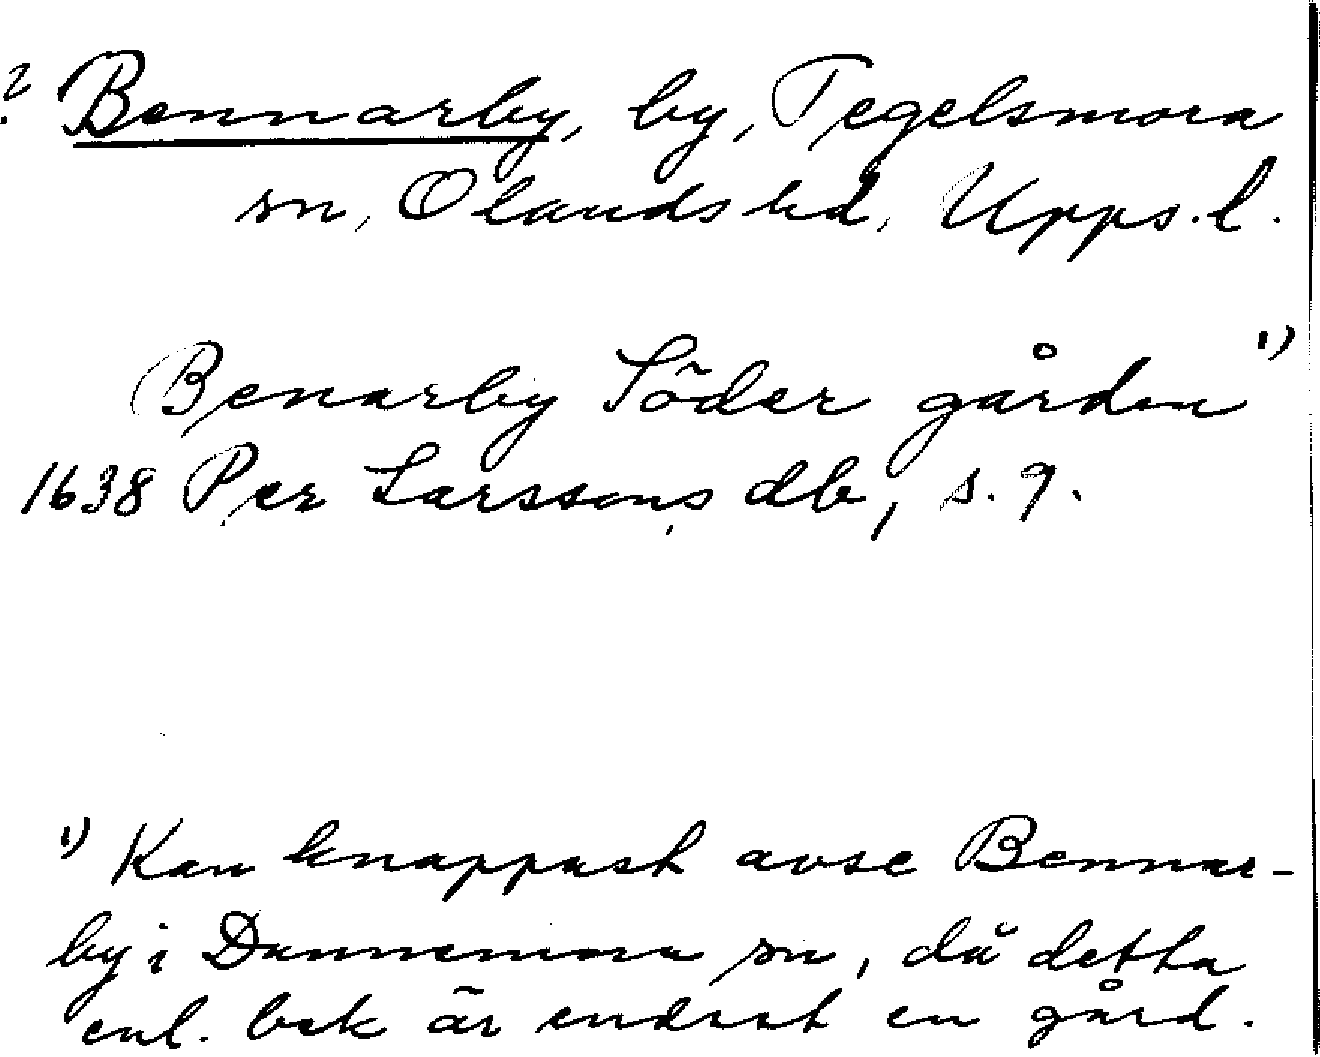 ? Bennarby, by, Tegelsmora
sn, Olands hd, Upps. l.
Benarby Söder gården ¹)
1638 Per Larssons db, s. 9.
¹) Kan knappast avse Bennar-
by i Dannemora sn, då detta
enl. bsk är endast en gård.